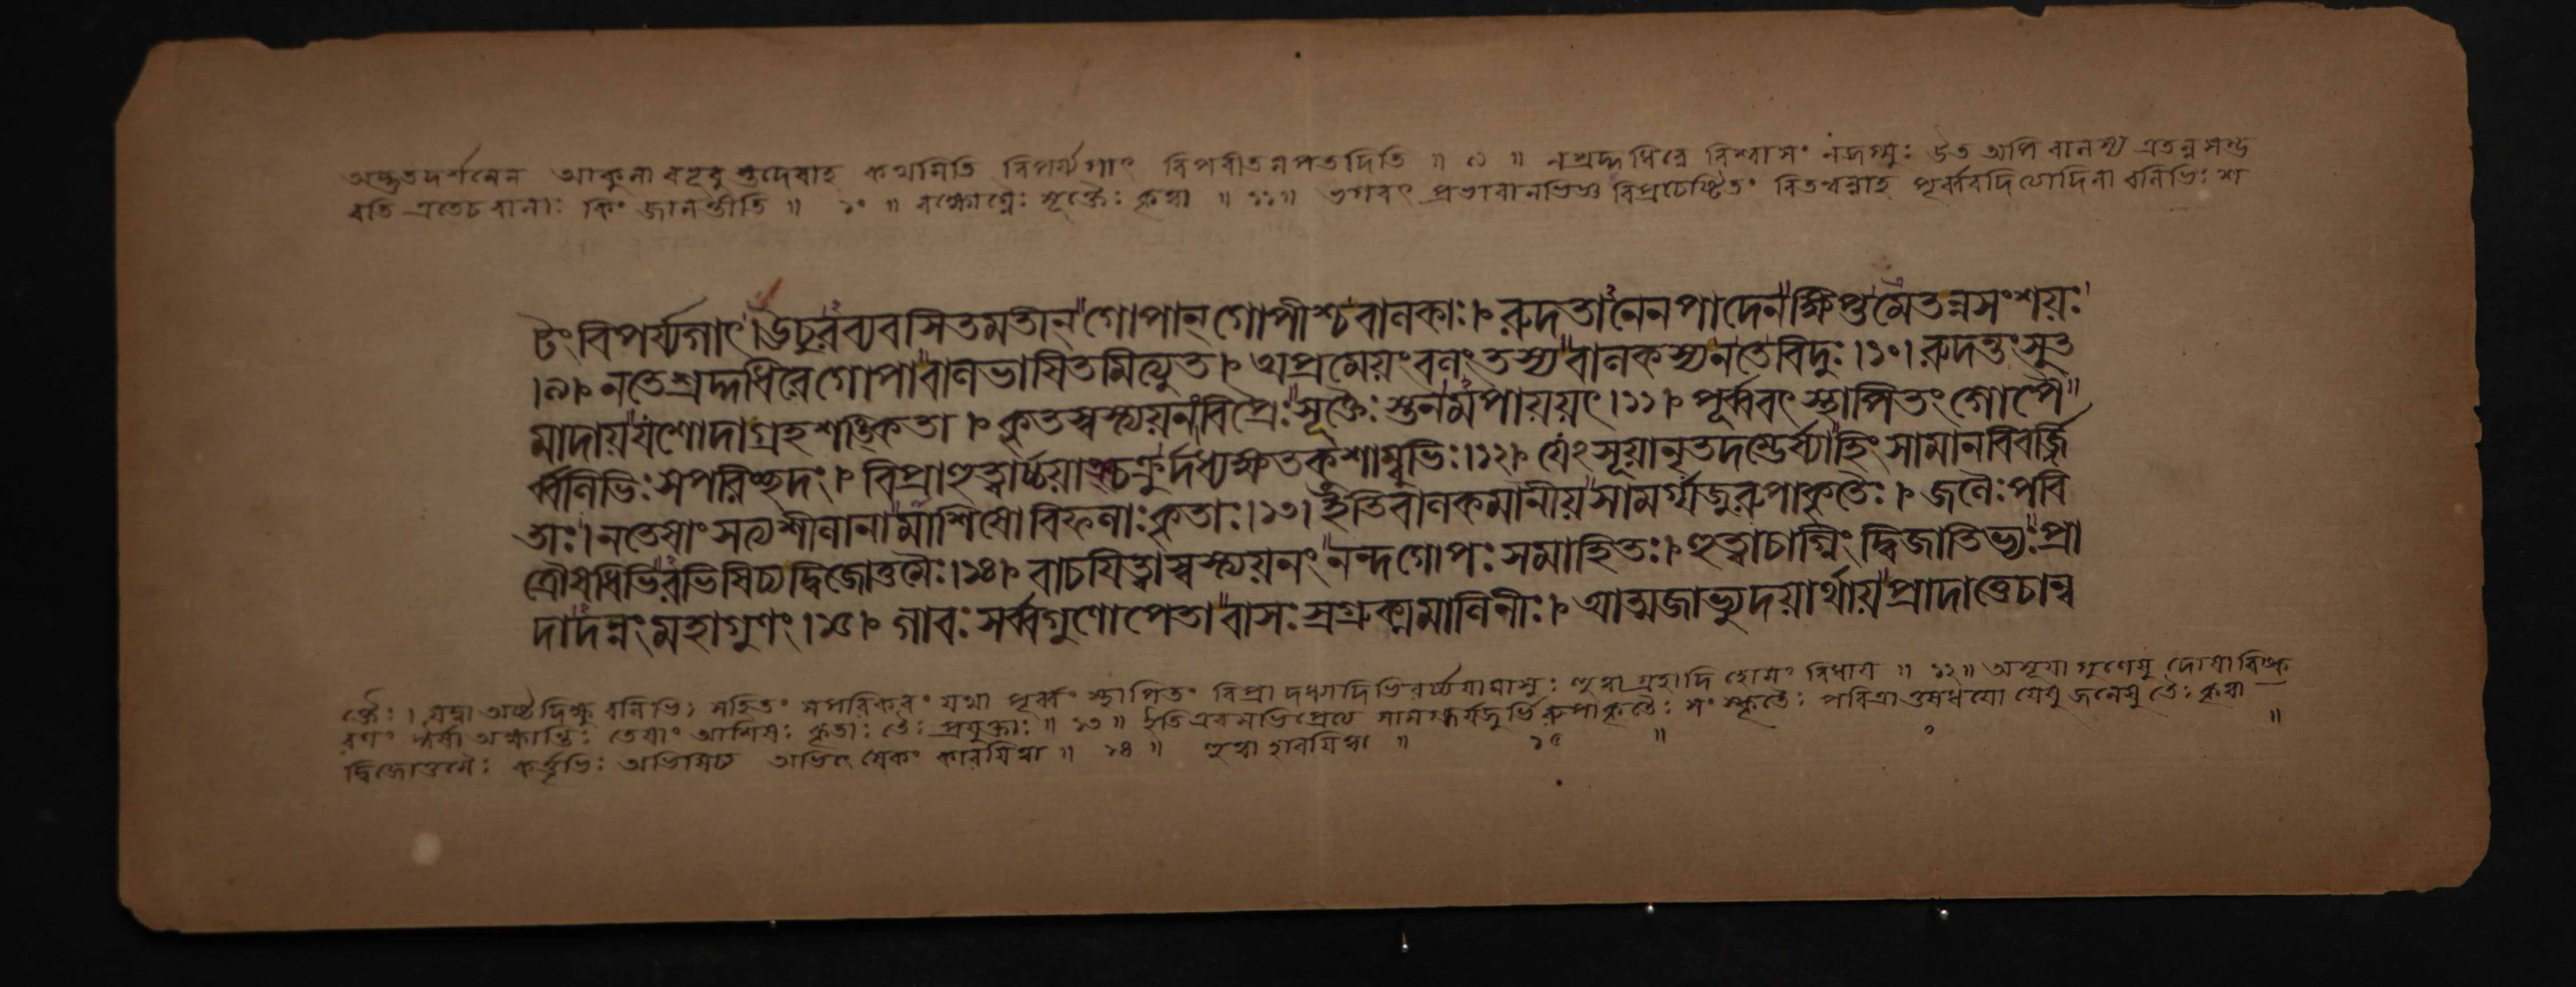 অদ্ভুতদর্শনেন আকুলা বহূবুস্তদেবাহ কথমিতি বিপর্য্যগাৎ বিপরীতমপতদিতি ॥ ৯ ॥ ন শ্রদ্দধিরে বিশ্বাসং নজগ্মুঃ উত অপি বালস্য এতন্ন সম্ভ
বতি এতেচ বালাঃ কিং জানন্তীতি ॥ ১০ ॥ রক্ষোঘ্নৈঃ সূক্তৈঃ কৃত্বা ॥ ১১ ॥ ভগবৎ প্রভাবানভিজ্ঞ বিপ্রচেষ্টিতং বিতথন্নাহ পূর্ব্ববদিত্যাদিনা বলিভিঃ শ
টং বিপর্য্যগাৎ। ঊচুরব্যবসিতমতীন্ গোপান্ গোপীশ্চ বালকাঃ। রুদতানেন পাদেন ক্ষিপ্তমেতন্ন সংশয়ঃ
।৯। ন তে শ্রদ্দধিরে গোপা বালভাষিতমিত্যুত। অপ্রমেয়ং বলং তস্য বালকস্য ন তে বিদুঃ।১০। রুদন্তং সুত
মাদায় যশোদা গ্রহশঙ্কিতা। কৃতস্বস্ত্যয়নং বিপ্রৈঃ সূক্তৈঃ স্তনমপায়য়ৎ।১১। পূর্ব্ববৎ স্থাপিতং গোপৈ
র্ব্বলিভিঃ সপরিচ্ছদং। বিপ্রা হুত্বার্চ্চয়াঞ্চক্রুর্দধ্যক্ষতকুশাম্বুভিঃ।১২। যেঽসূয়ানৃতদম্ভের্ষ্যাহিংসামানবিবর্জ্জি
তাঃ। ন তেষাং সত্যশীলানামাশিষো বিফলাঃ কৃতাঃ।১৩। ইতি বালকমানীয় সামর্গ্যজুরুপাকৃতৈঃ। জলৈঃ পবি
ত্রৌষধিভিরভিষিচ্য দ্বিজোত্তমৈঃ।১৪। বাচয়িত্বা স্বস্ত্যয়নং নন্দগোপঃ সমাহিতঃ। হুত্বা চাগ্নিং দ্বিজাতিভ্যঃ প্রা
দাদন্নং মহাগুণং।১৫। গাবঃ সর্ব্বগুণোপেতা বাসঃস্রগ্রুক্মমালিনীঃ। আত্মজাভ্যুদয়ার্থায় প্রাদাত্তে চান্ব
ক্তৈঃ। যদ্বা অষ্ট দিক্ষু বলিভিঃ সহিতং সপরিকরং যথা পূর্ব্বং স্থাপিতং বিপ্রা দধ্যাদিভিরর্চ্চয়ামাসুঃ হুত্বা গ্রহাদি হোমং বিধায় ॥ ১২ ॥ অসূয়া গুণেষু দোষাবিষ্ক
রণং ঈর্ষা অক্ষান্তিঃ তেষাং আশিষঃ কৃতাঃ তৈঃ প্রযুক্তাঃ ॥ ১৩ ॥ ইতি এবমভিপ্রেত্য সামঋগ্যজুর্ভিরুপাকৃতৈঃ সংস্কৃতৈঃ পবিত্রা ওষধয়ো যেষু জলেষু তৈঃ কৃত্বা
দ্বিজোত্তমৈঃ কর্ত্তৃভিঃ অভিষিচ্য অভিষেকং কারয়িত্বা ॥ ১৪ ॥ হুত্বা হাবয়িত্বা ॥ ১৫ ॥